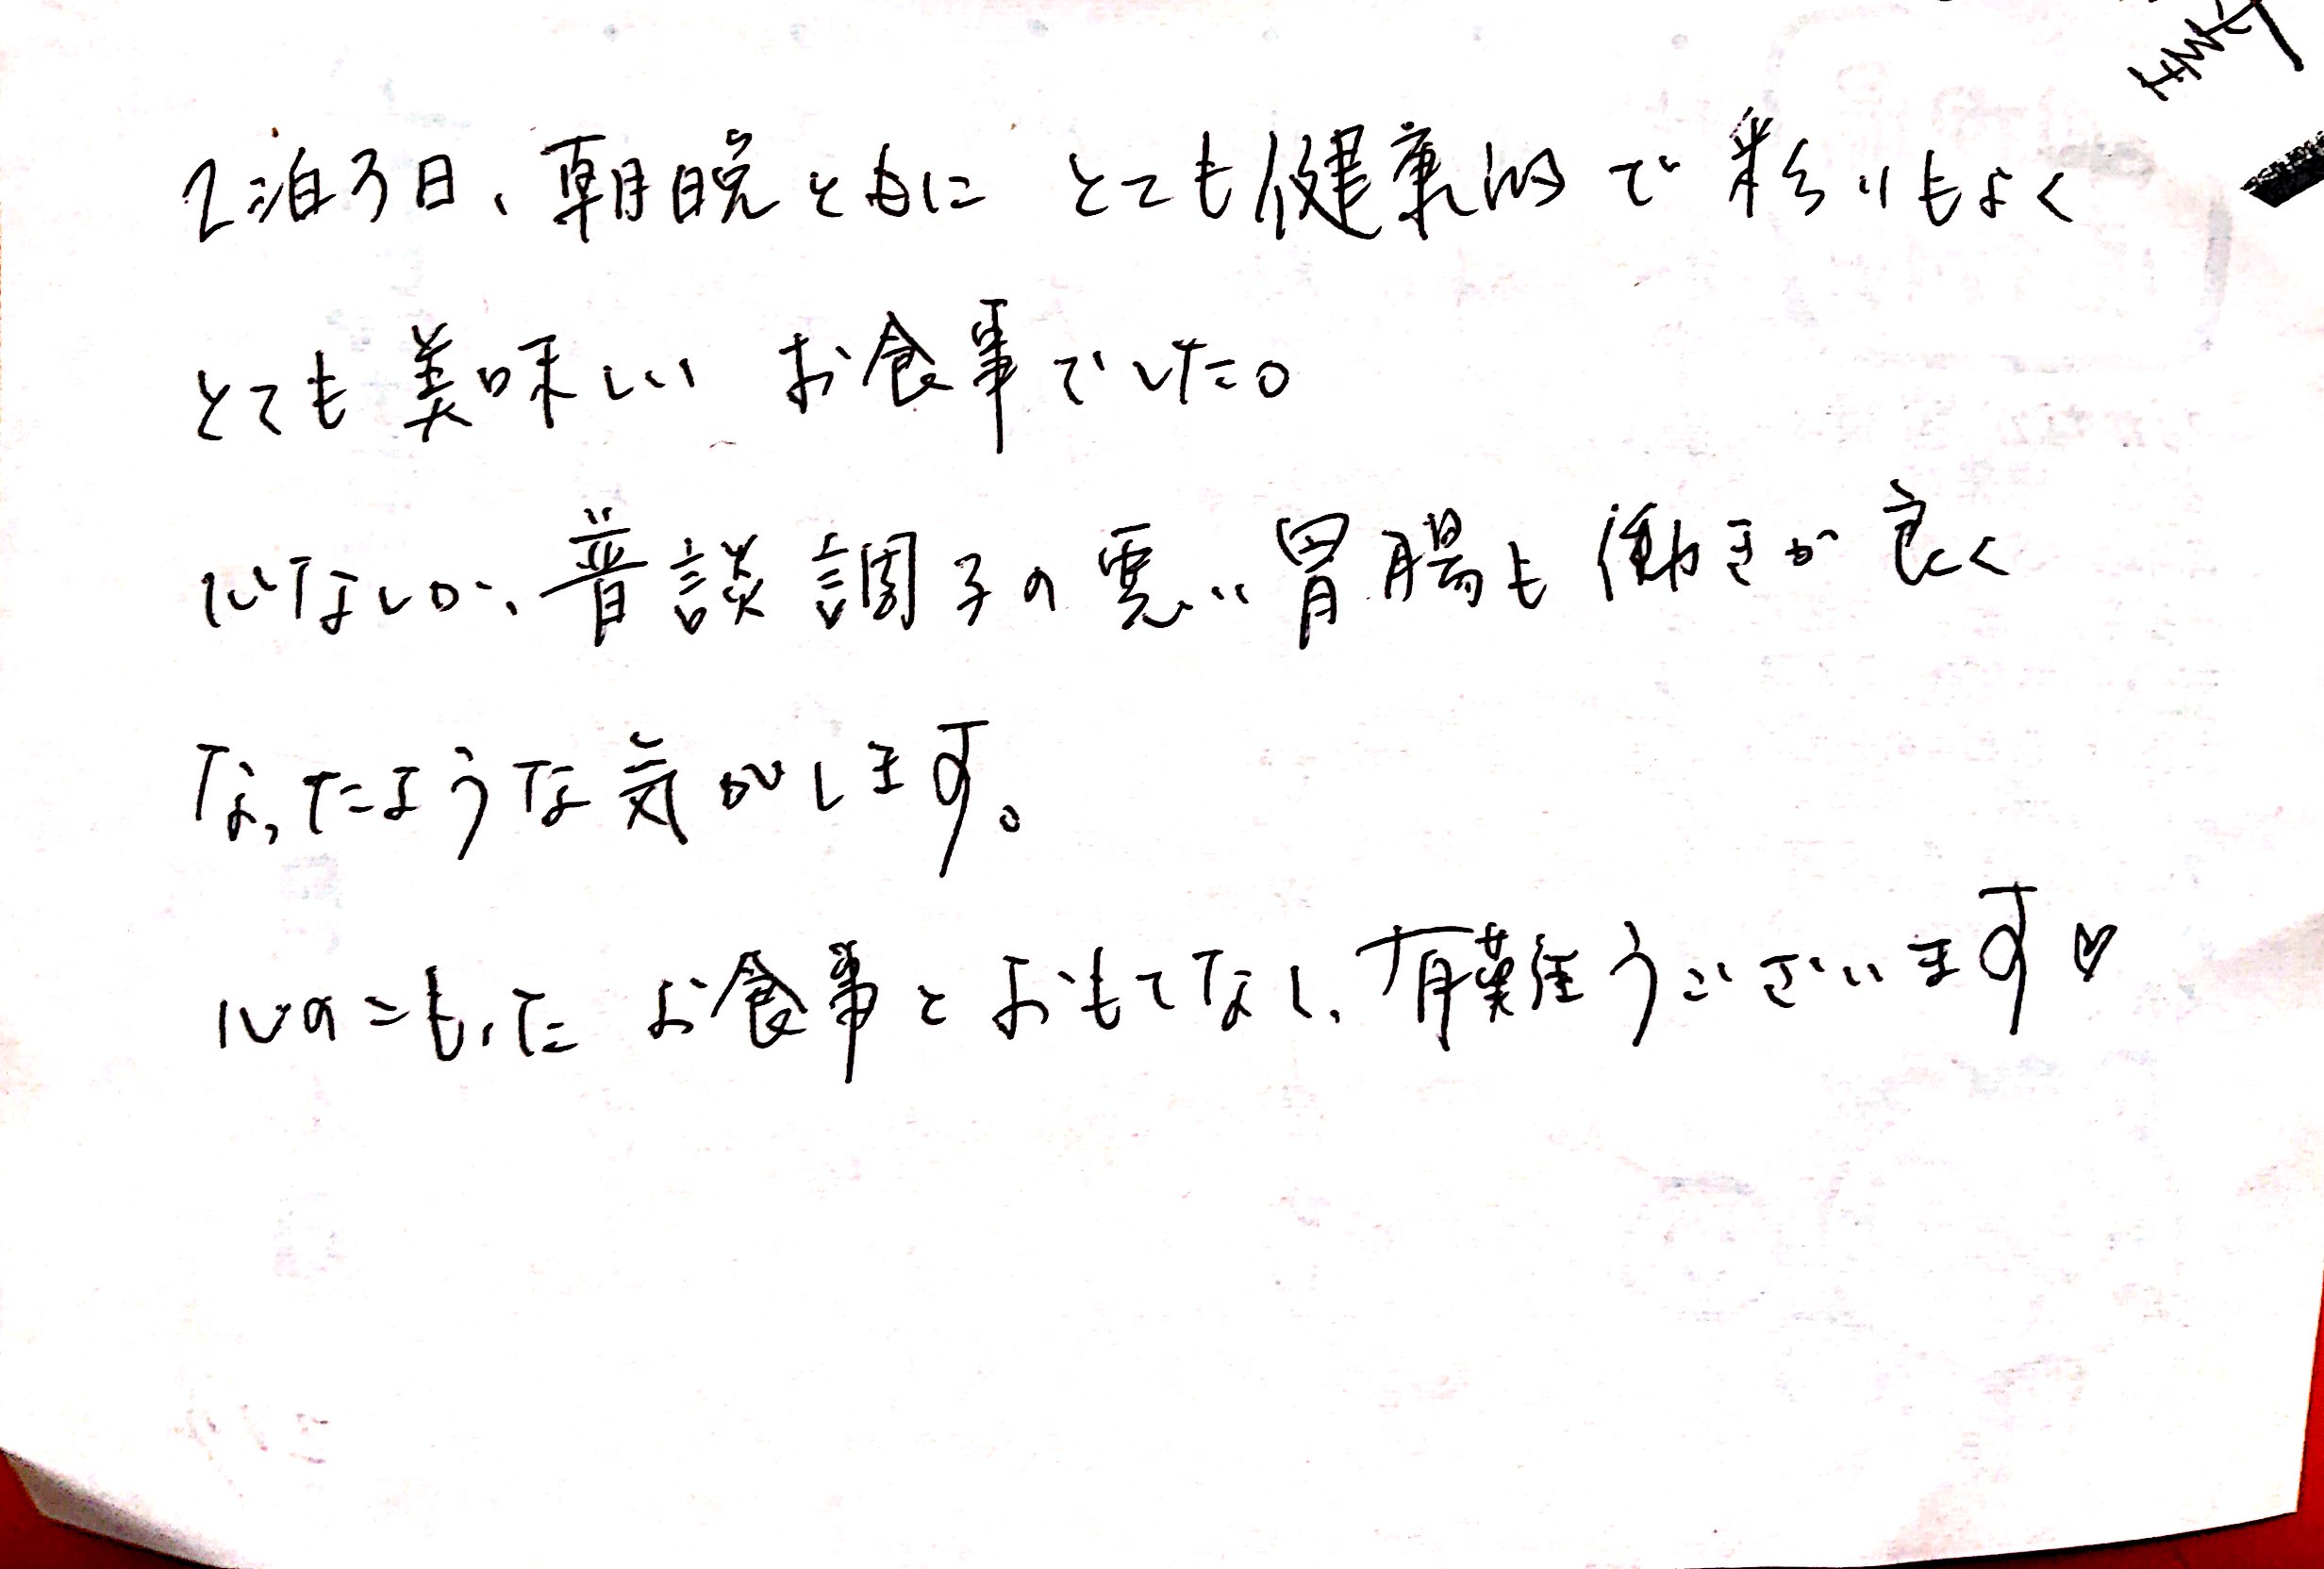 2泊3日、朝晩ともに とても健康的で彩りもよく
とても美味しい お食事でした。
心なしか、普談調子の悪い胃腸も働きが良く
なったような気がします。
心のこもった お食事とおもてなし、有難うございます♡